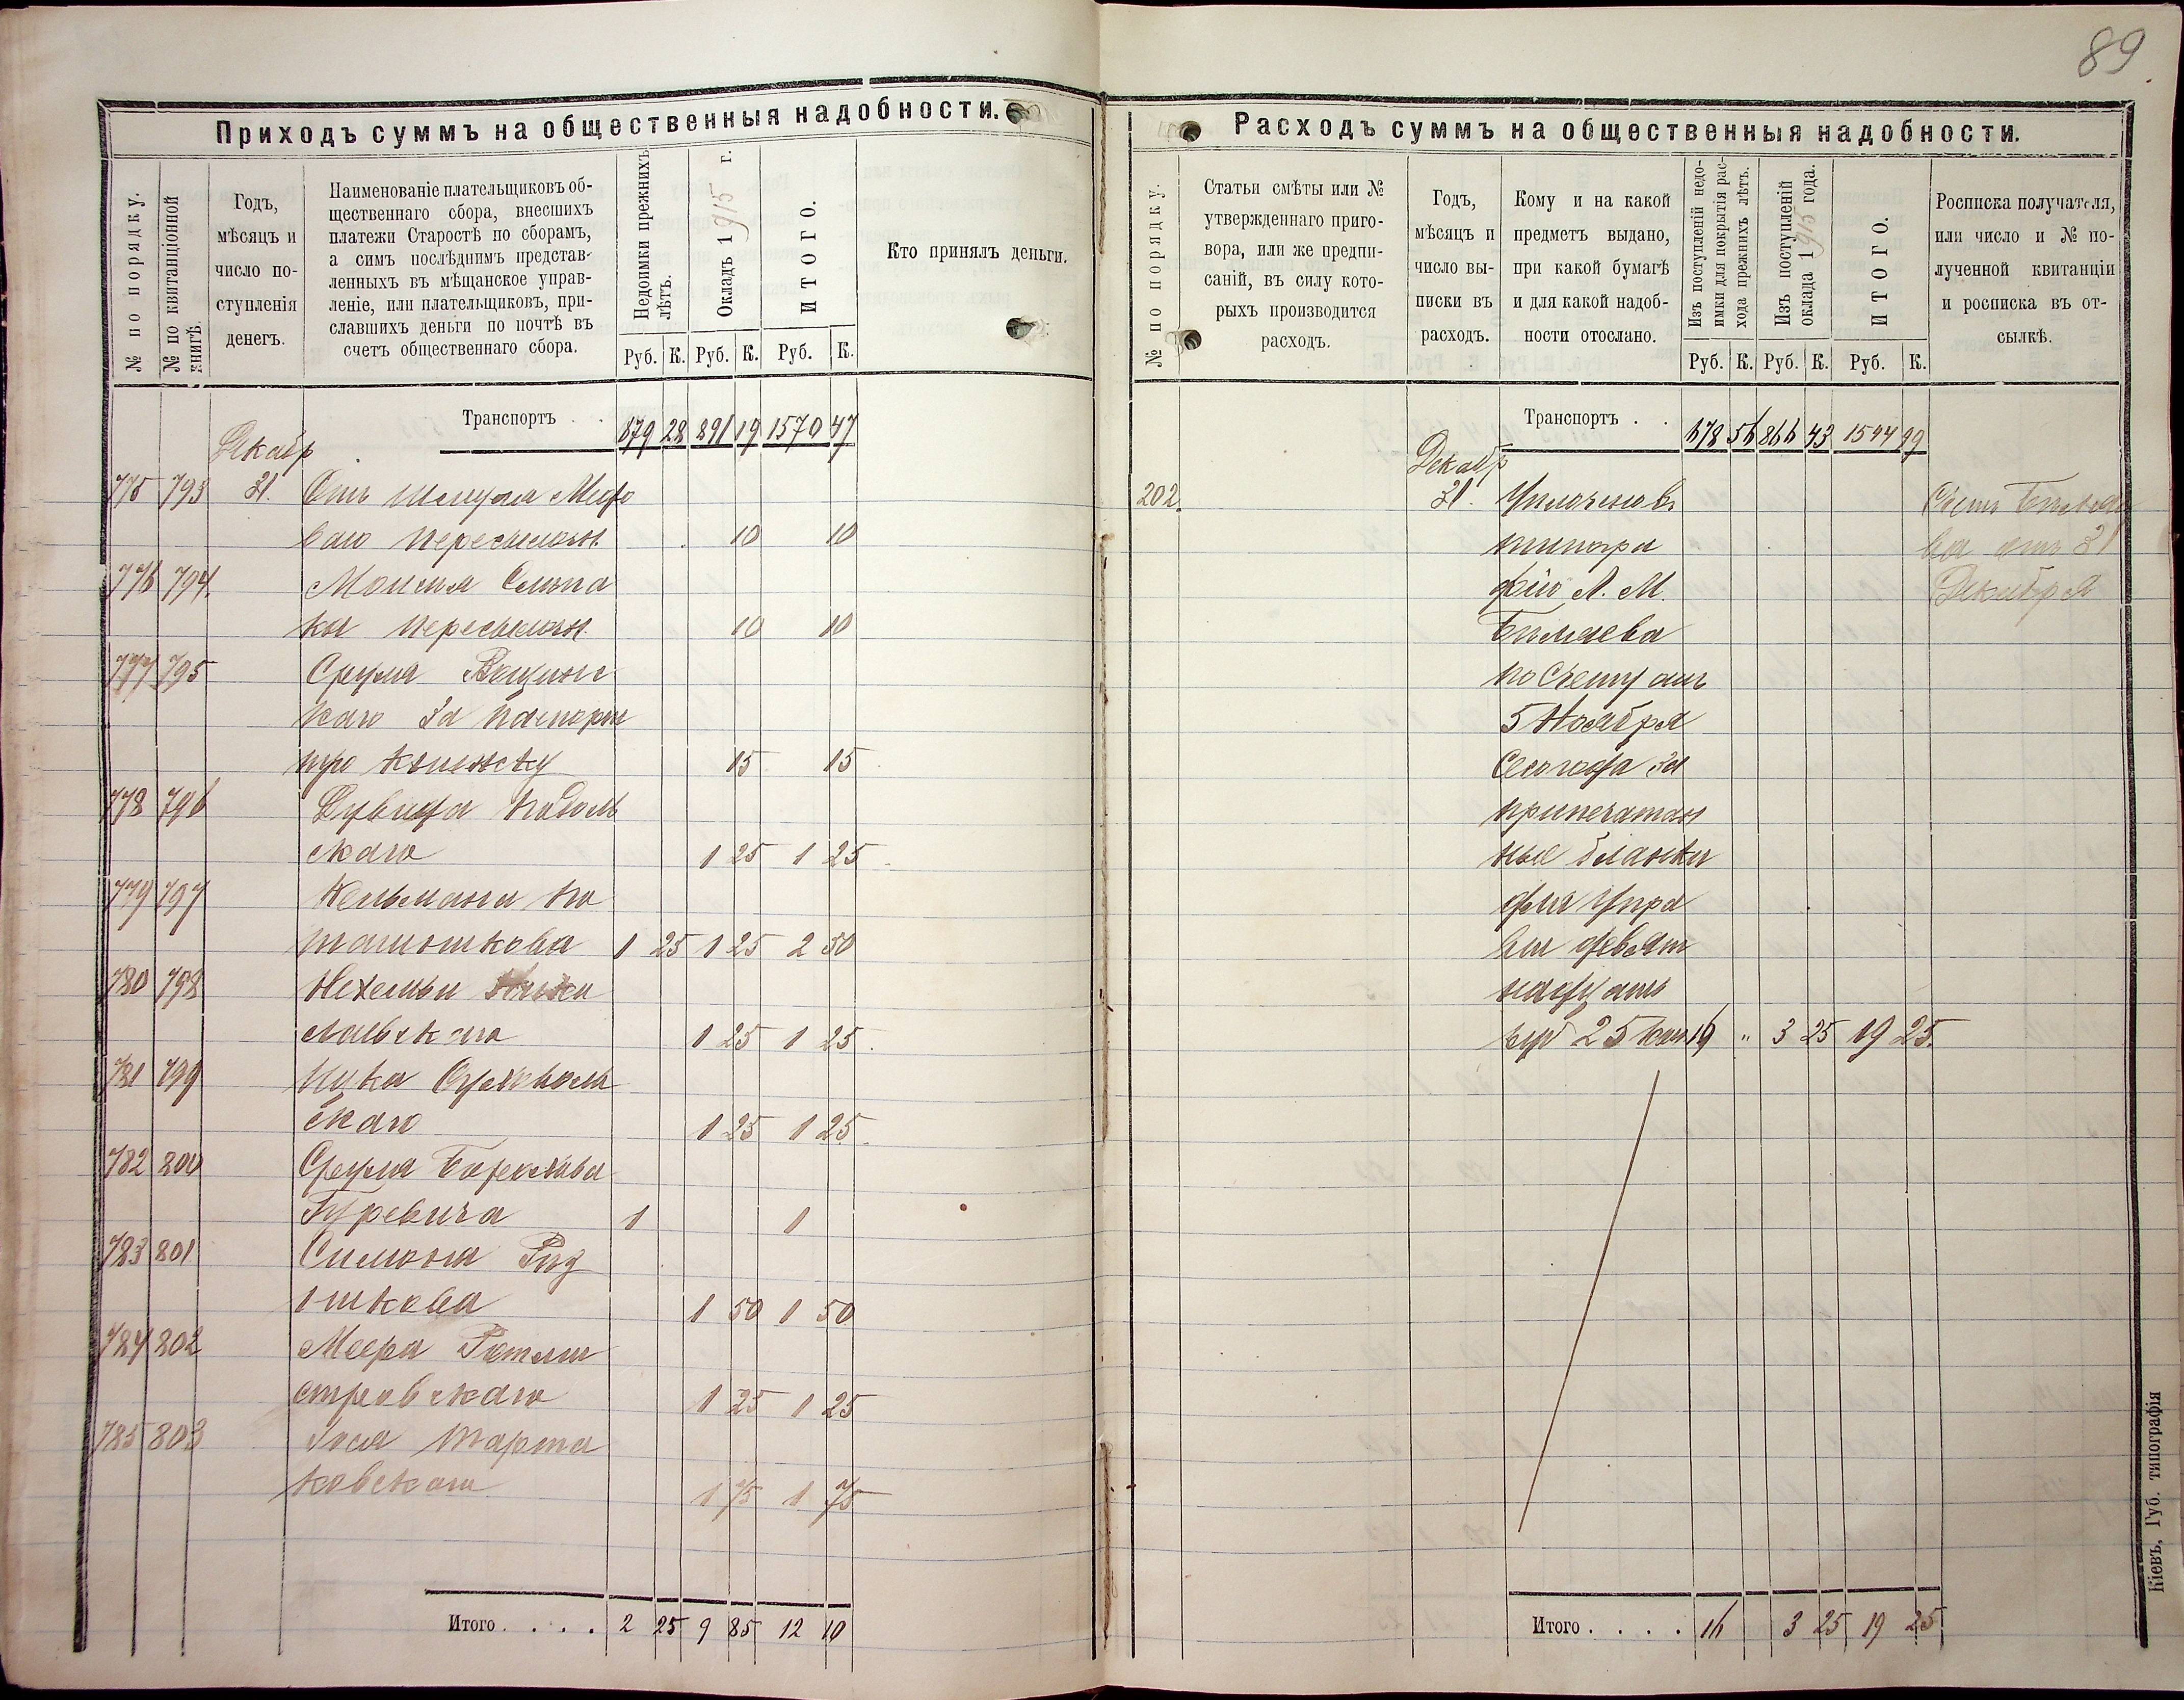 89
Приходъ суммъ на общественныя надобности.
№ по порядку.
№ по квитанціонной книгѣ.
Годъ,
мѣсяцъ и
число по-
ступленія
денегъ.
Наименованіе плательщиковъ об-
щественнаго сбора, внесшихъ
платежи Старостѣ по сборамъ,
а симъ послѣднимъ представ-
ленныхъ въ мѣщанское управ-
леніе, или плательщиковъ, при-
славшихъ деньги по почтѣ въ
счетъ общественнаго сбора.
Недоимки прежнихъ
лѣтъ.
Окладъ 1915 г.
ИТОГО.
Кто принялъ деньги.
Руб. К. Руб. К. Руб. К.
Транспортъ . . 679 28 891 19 1570 47
Декабр
775 793 31. Отъ
ваго пересылочн. 10 10
776 794 Моисея
ки пересылочн. 10 10
777 795 Сруля
каго за паспорт
ную книжку 15 15
778 796 Дувида Подоль
скаго 1 25 1 25
779 797 Кельмана По
ташникова 1 25 1 25 2 50
780 798 Нехемьи
славскаго 1 25 1 25
781 799
скаго 1 25 1 25
782 800 Сруля
Гуревича 1 1
783 801 Симона
шкова 1 50 1 50
784 802 Меера Ротми
стровскаго 1 25 1 25
785 803 Іося Тарта
ковскаго 1 75 1 75
Итого . . . . 2 25 9 85 12 10
Расходъ суммъ на общественныя надобности.
№ по порядку.
Статьи смѣты или №
утвержденнаго приго-
вора, или же предпи-
саній, въ силу кото-
рыхъ производится
расходъ.
Годъ,
мѣсяцъ и
число вы-
писки въ
расходъ.
Кому и на какой
предметъ выдано,
при какой бумагѣ
и для какой надоб-
ности отослано.
Изъ поступленій недо-
имки для покрытія рас-
хода прежнихъ лѣтъ.
Изъ поступленій
оклада 1915 года.
ИТОГО.
Росписка получателя,
или число и № по-
лученной квитанціи
и росписка въ от-
сылкѣ.
Руб. К. Руб. К. Руб. К.
Транспортъ . . 678 56 866 43 1544 99
Декабр
202. 31. Уплочено въ Счетъ
типогра ва отъ 31
фію А. М. Декабря
Биляева
по счету отъ
5 Ноября
сего года за
припечатан
ные бланки
для Упра
вы девят
надцать
руб 25 коп 16 „ 3 25 19 25.
Итого . . . . 16 3 25 19 25
Кіевъ, Губ. типографія